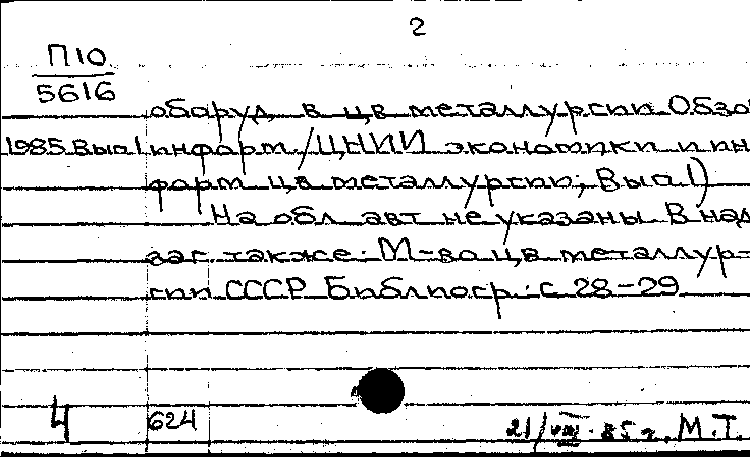 2
П10
5616
оборуд в цв металлургии Обзо
1985 Вып 1 информ / ЦНИИ экономики и ин
форм цв металлургии; Вып 1)
На обл авт не указаны В над
заг также: М-во цв металлур-
гии СССР Библиогр: с 28-29
4 624 21/VIII-85 г. М.Т.